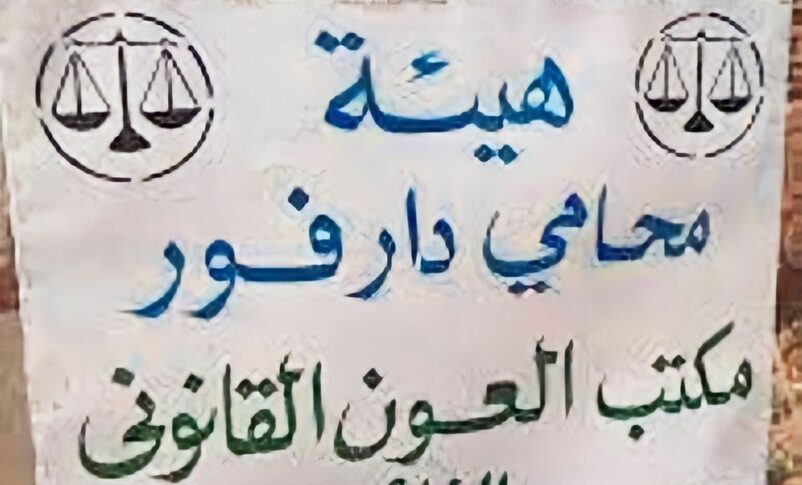 هيئة
محامي دارفور
مكتب العون القانونى